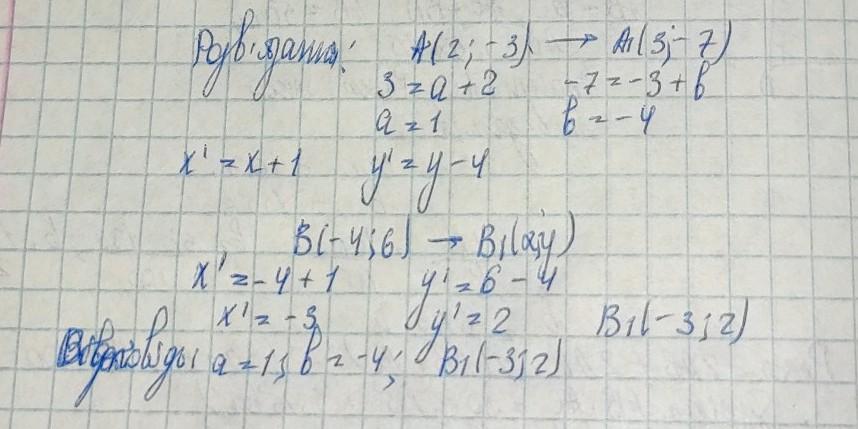 Розв'язання: A(2; -3) → A₁(3; -7)
3 = a + 2 -7 = -3 + b
a = 1 b = -4
x' = x + 1 y' = y - 4
B(-4; 6) → B₁(x; y)
x' = -4 + 1 y' = 6 - 4
x' = -3 y' = 2 B₁(-3; 2)
a = 1; b = -4; B₁(-3; 2)